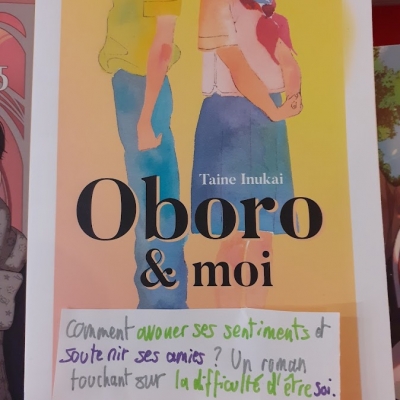 5
Taine Inukai
Oboro
& moi
Comment avouer ses sentiments et
soutenir ses amies ? Un roman
touchant sur la difficulté d'être soi.